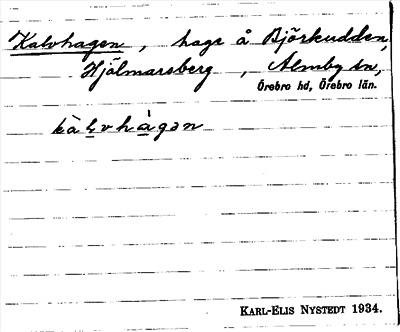 Kalvhagen, hage å Björkudden,
Hjälmarsberg, Almby sn,
Örebro hd, Örebro län.
kàlvhàgən
KARL-ELIS NYSTEDT 1934.